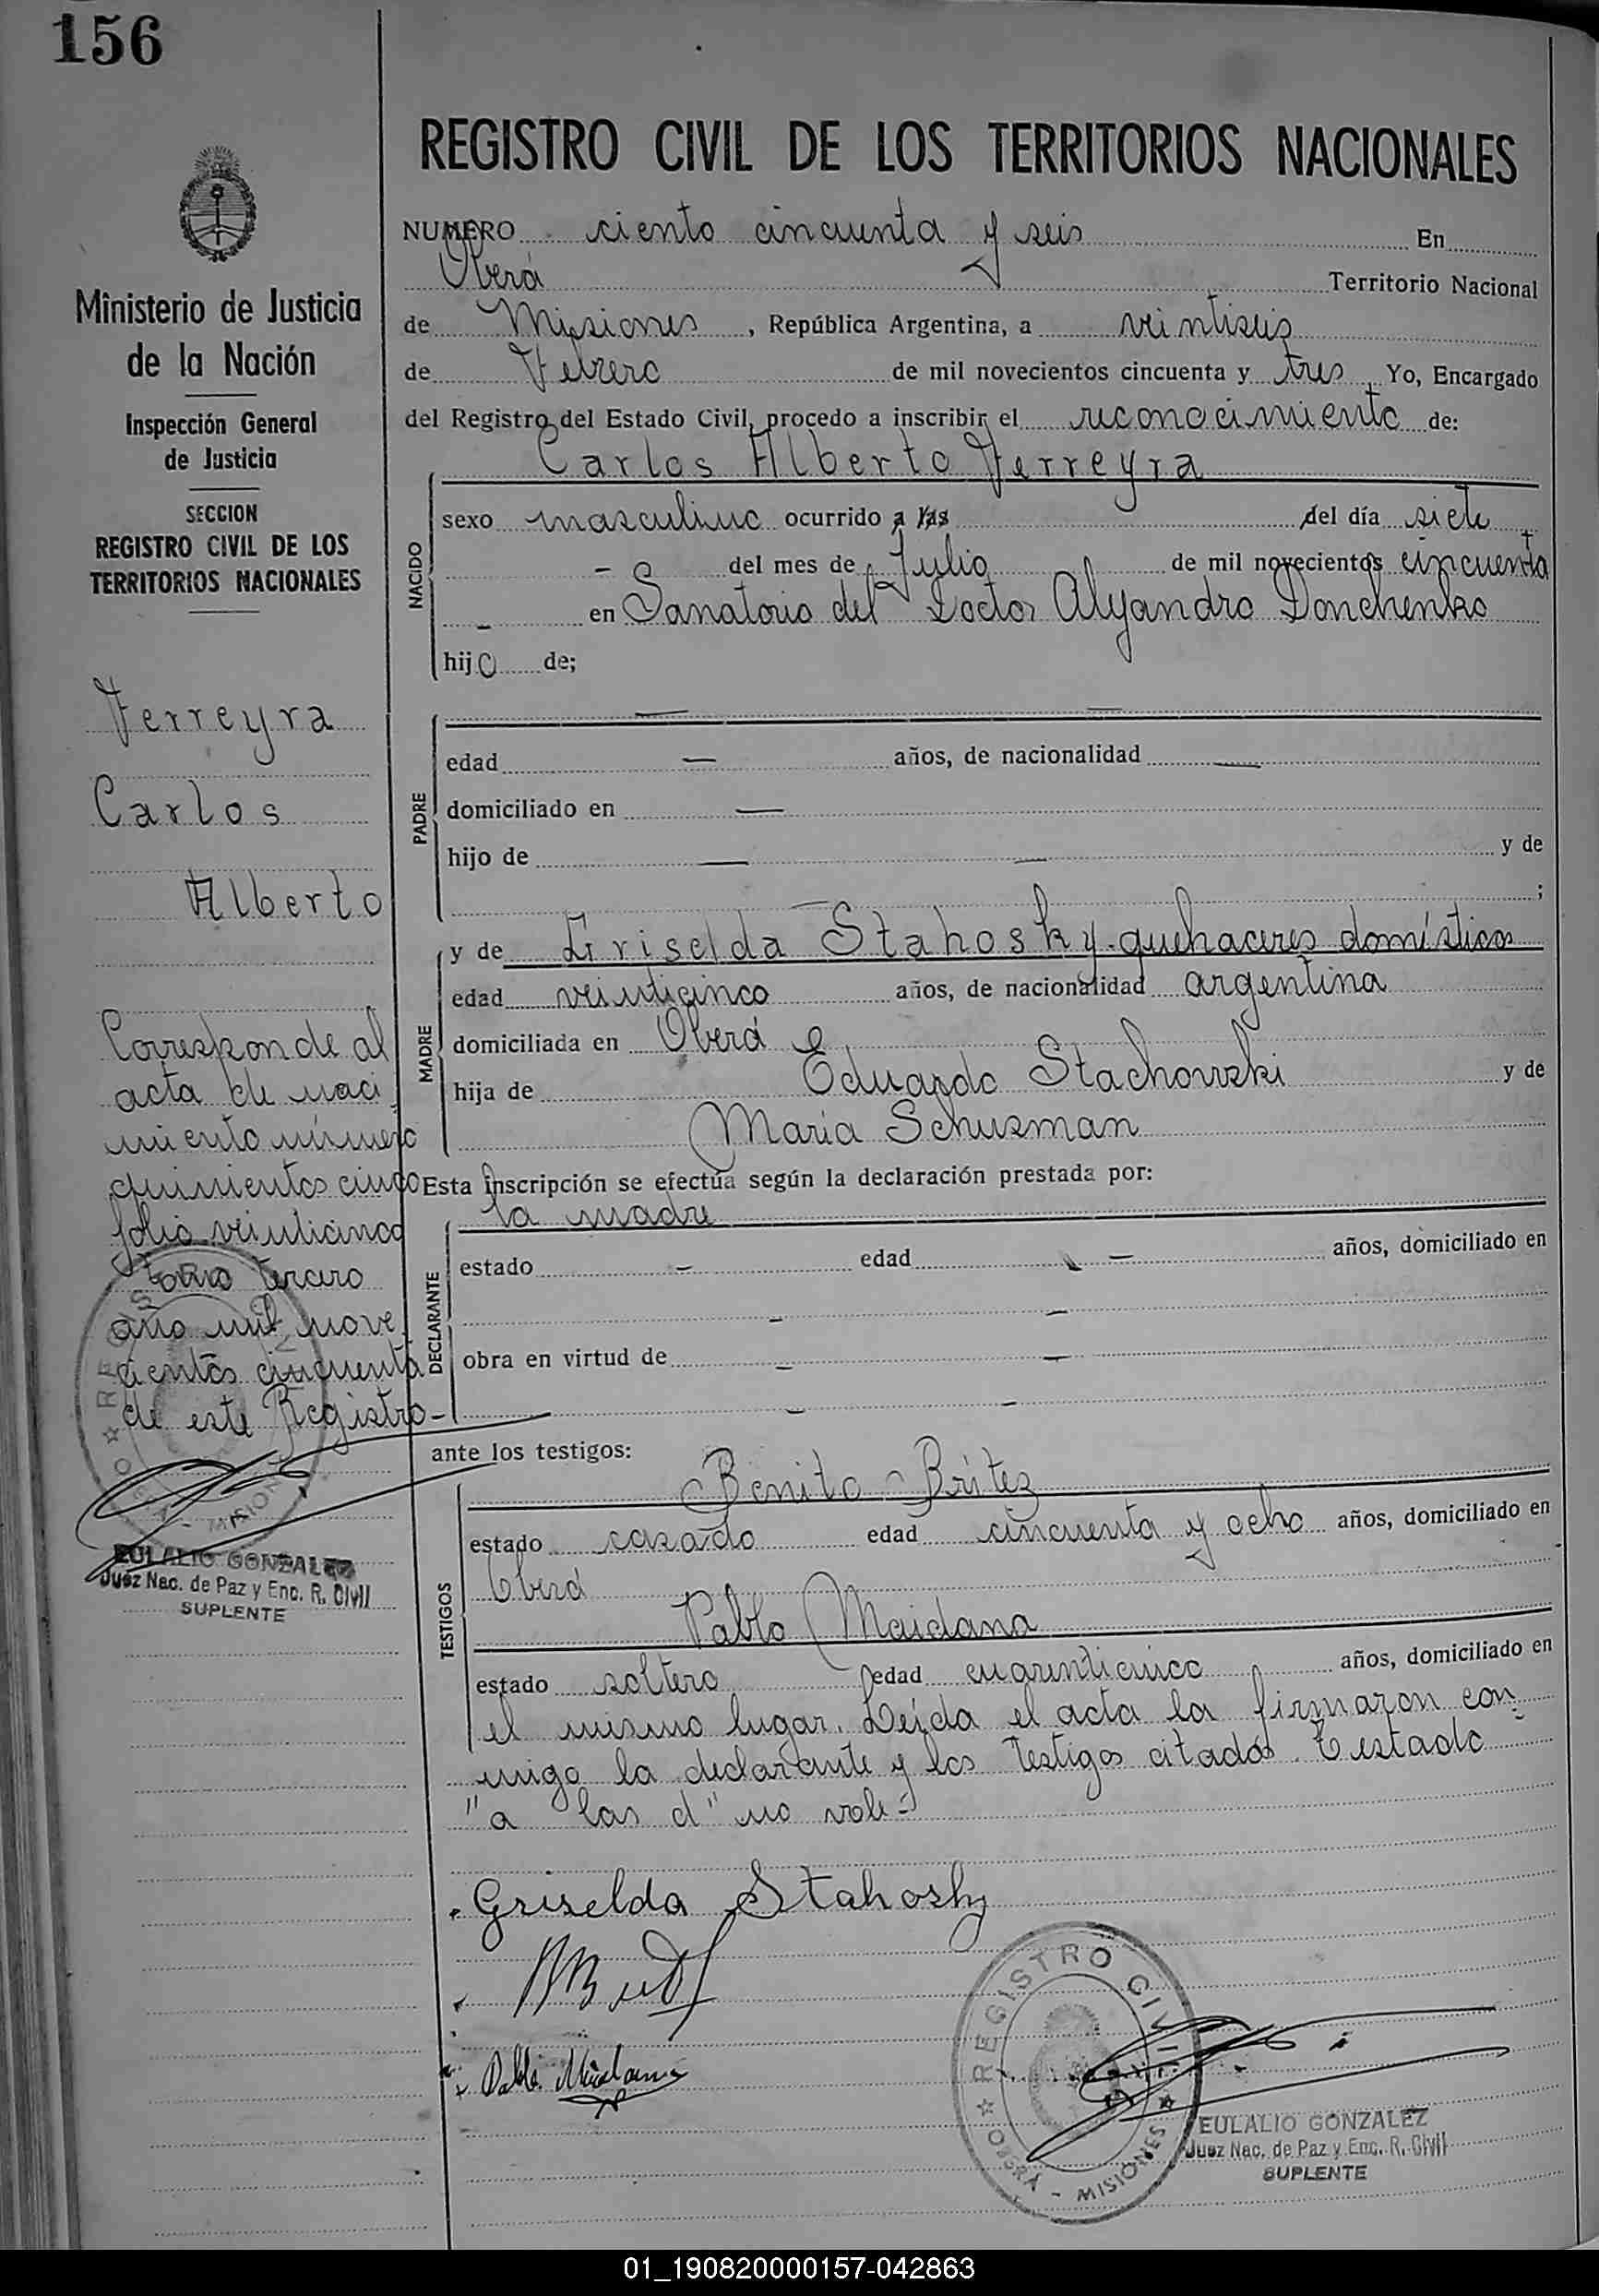 156
REGISTRO CIVIL DE LOS TERRITORIOS NACIONALES
Ministerio de Justicia
de la Nación
Inspección General
de Justicia
SECCION
REGISTRO CIVIL DE LOS
TERRITORIOS NACIONALES
Ferreyra
Carlos
Alberto
Corresponde al
acta de naci
miento número
quinientos cinco
folio veinticinco
tomo tercero
año mil nove
cientos cincuenta
de este Registro-
EULALIO GONZALEZ
Juez Nac. de Paz y Enc. R. Civil
SUPLENTE
NUMERO ciento cincuenta y seis En
Oberá Territorio Nacional
de Misiones, República Argentina, a veintiseis
de Febrero de mil novecientos cincuenta y tres Yo, Encargado
del Registro del Estado Civil, procedo a inscribir el reconocimiento de:
Carlos Alberto Ferreyra
NACIDO
sexo masculino ocurrido a las del día siete
- del mes de Julio de mil novecientos cincuenta
- en Sanatorio del Doctor Alejandro Donchenko
hijo de;
PADRE
— —
edad — años, de nacionalidad —
domiciliado en —
hijo de — — y de
— ;
MADRE
y de Griselda Stahosky-quehaceres domésticos
edad veinticinco años, de nacionalidad argentina
domiciliada en Oberá e
hija de Eduardo Stachowski y de
Maria Schusman
Esta inscripción se efectúa según la declaración prestada por:
la madre
DECLARANTE
estado - edad - años, domiciliado en
- -
obra en virtud de - -
- -
ante los testigos:
TESTIGOS
Benito Britez
estado casado edad cincuenta y ocho años, domiciliado en
Oberá
Pablo Maidana
estado soltero edad cuarenticinco años, domiciliado en
el mismo lugar. Leída el acta la firmaron con
migo la declarante y los testigos citados. Testado
"a las d" no vale-
Griselda Stahosky
Pablo Maidana
REGISTRO CIVIL
OBERÁ - MISIONES
EULALIO GONZALEZ
Juez Nac. de Paz y Enc. R. Civil
SUPLENTE
01_190820000157-042863